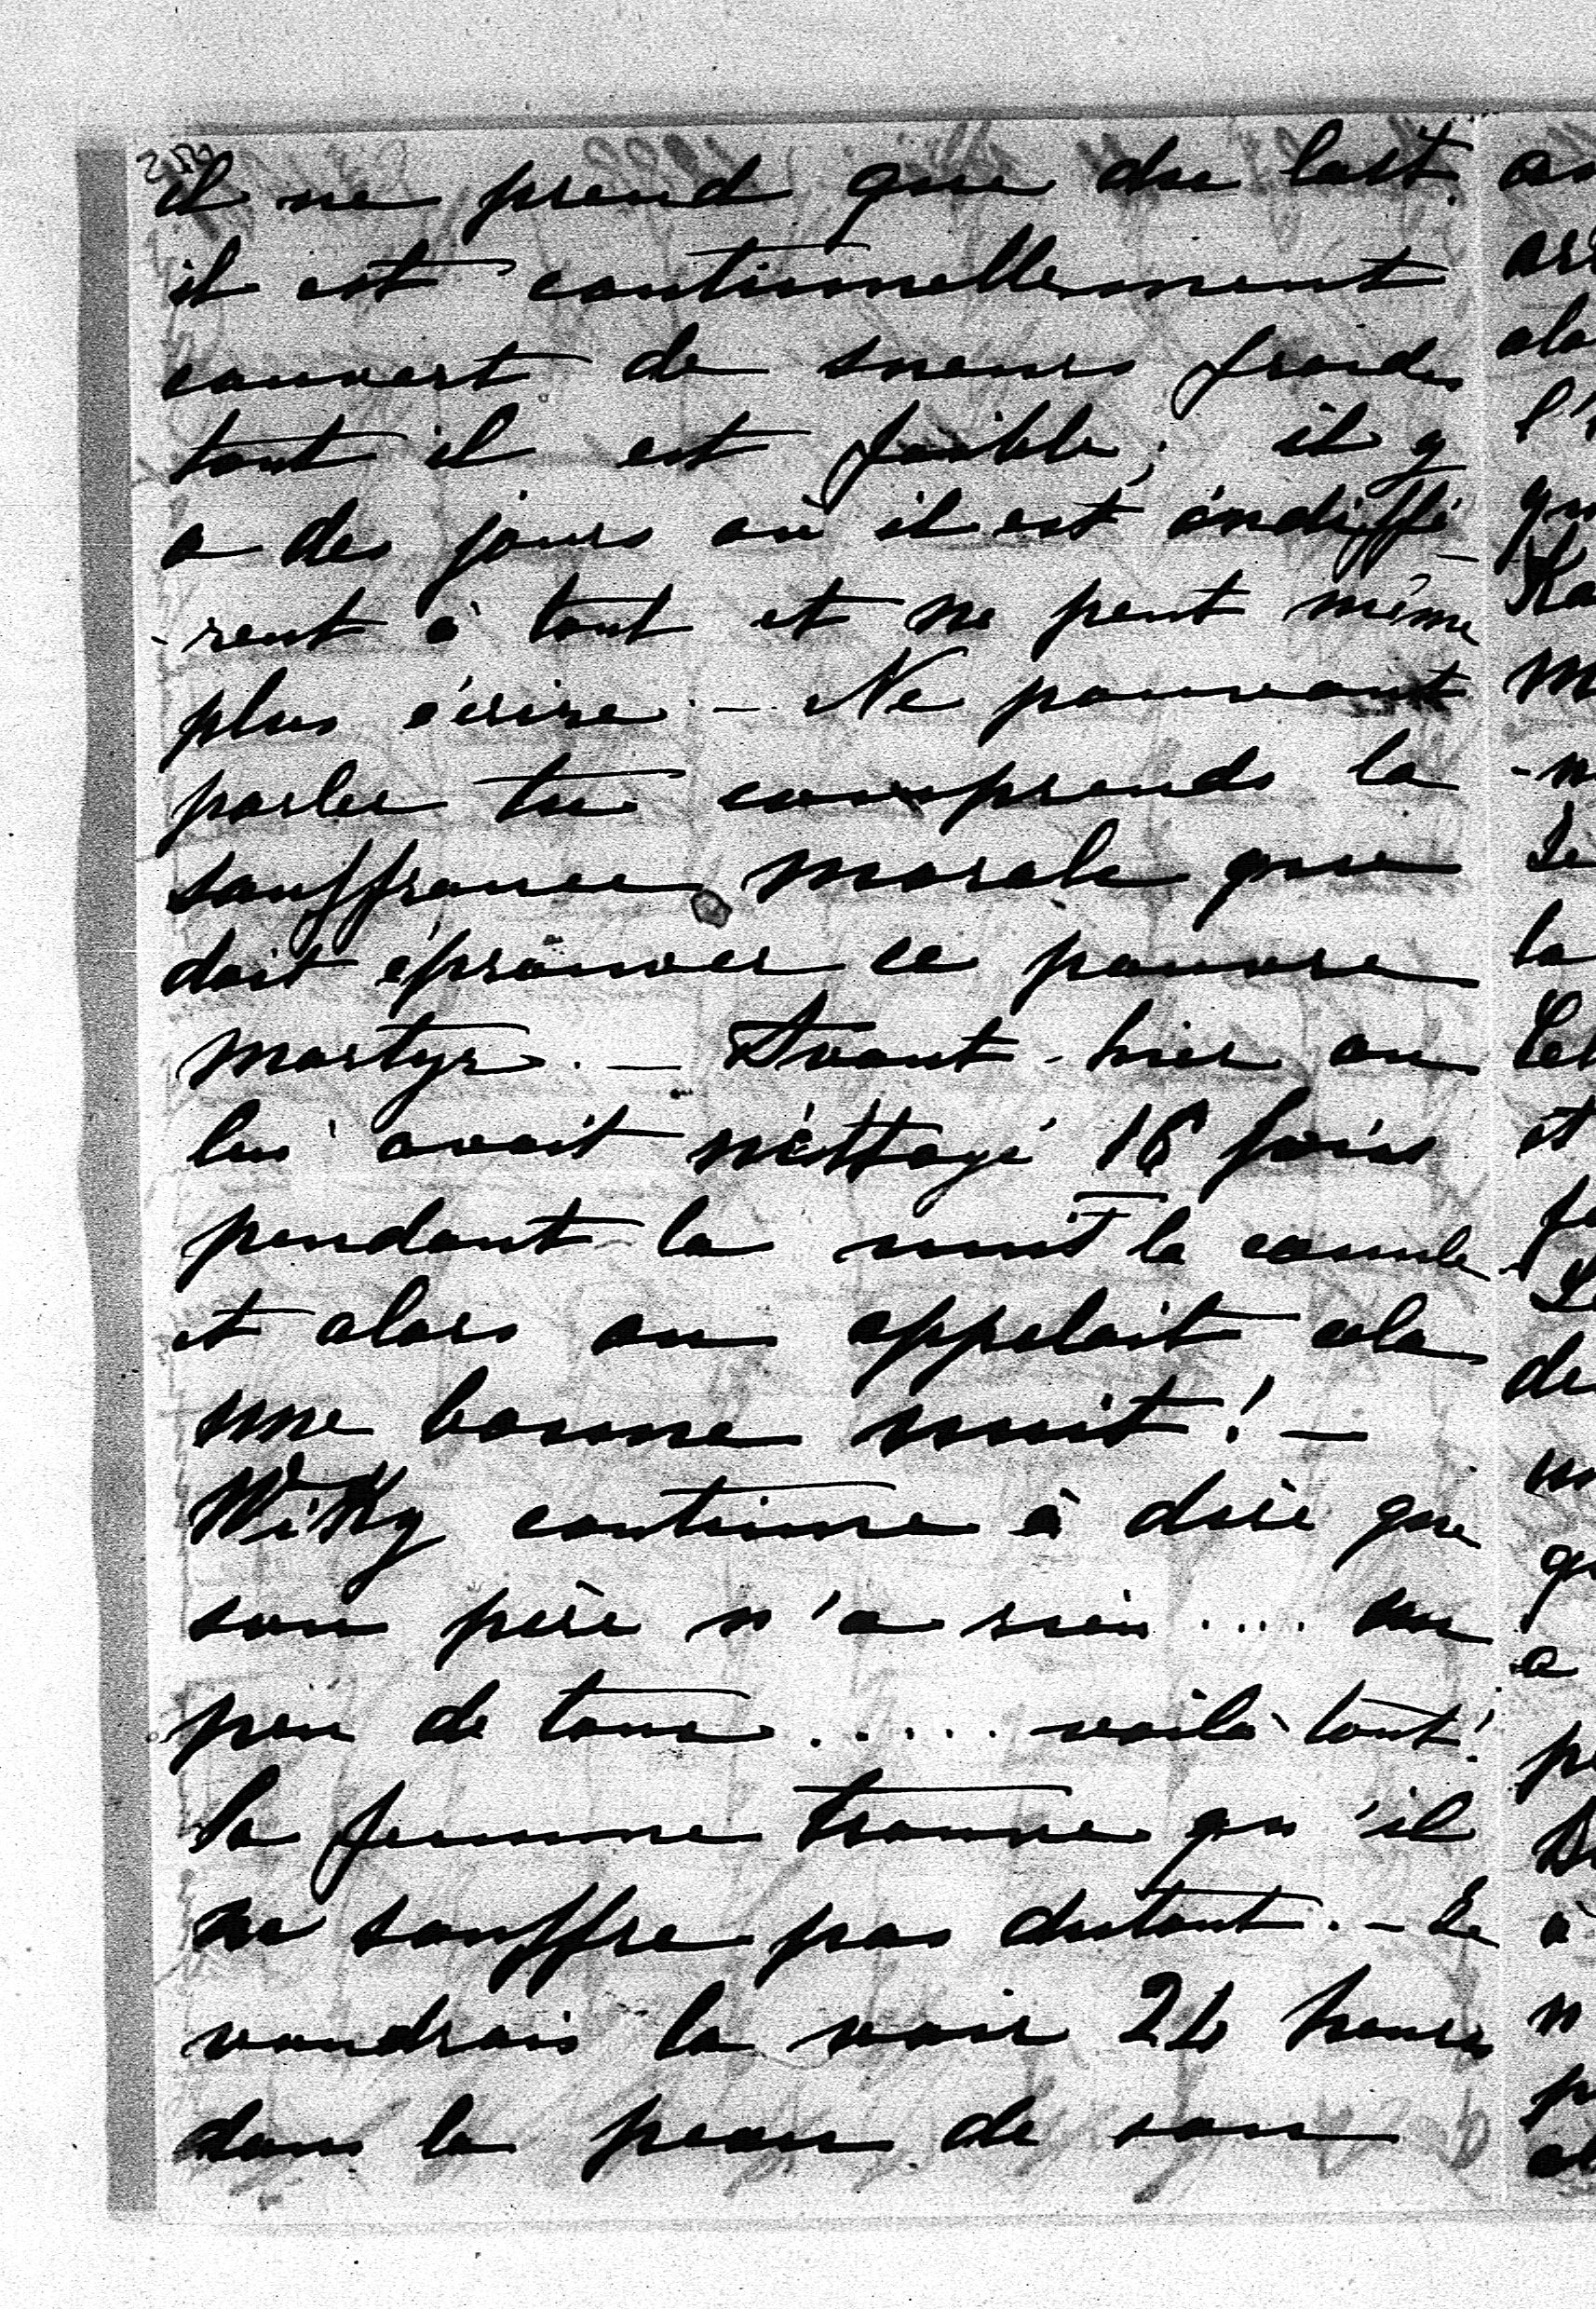 il ne prend que du lait.
il est continuellement
couvert de sueurs froides
tant il est faible; il y
a des jours où il est indiffé-
-rent à tout et ne peut même
plus écrire. — Ne pouvant
parler tu comprends la
souffrance morale que
doit éprouver ce pauvre
martyr. — Avant-hier on
lui avait néttoyé 16 fois
pendant la nuit la canule
et alors on appelait cela
une bonne nuit! —
Wiky continue à dire que
son père n'a rien .... un
peu de toux ..... voilà tout!
La femme trouve qu'il
ne souffre pas dutout. — Je
voudrais la voir 24 heures
dans la peau de son